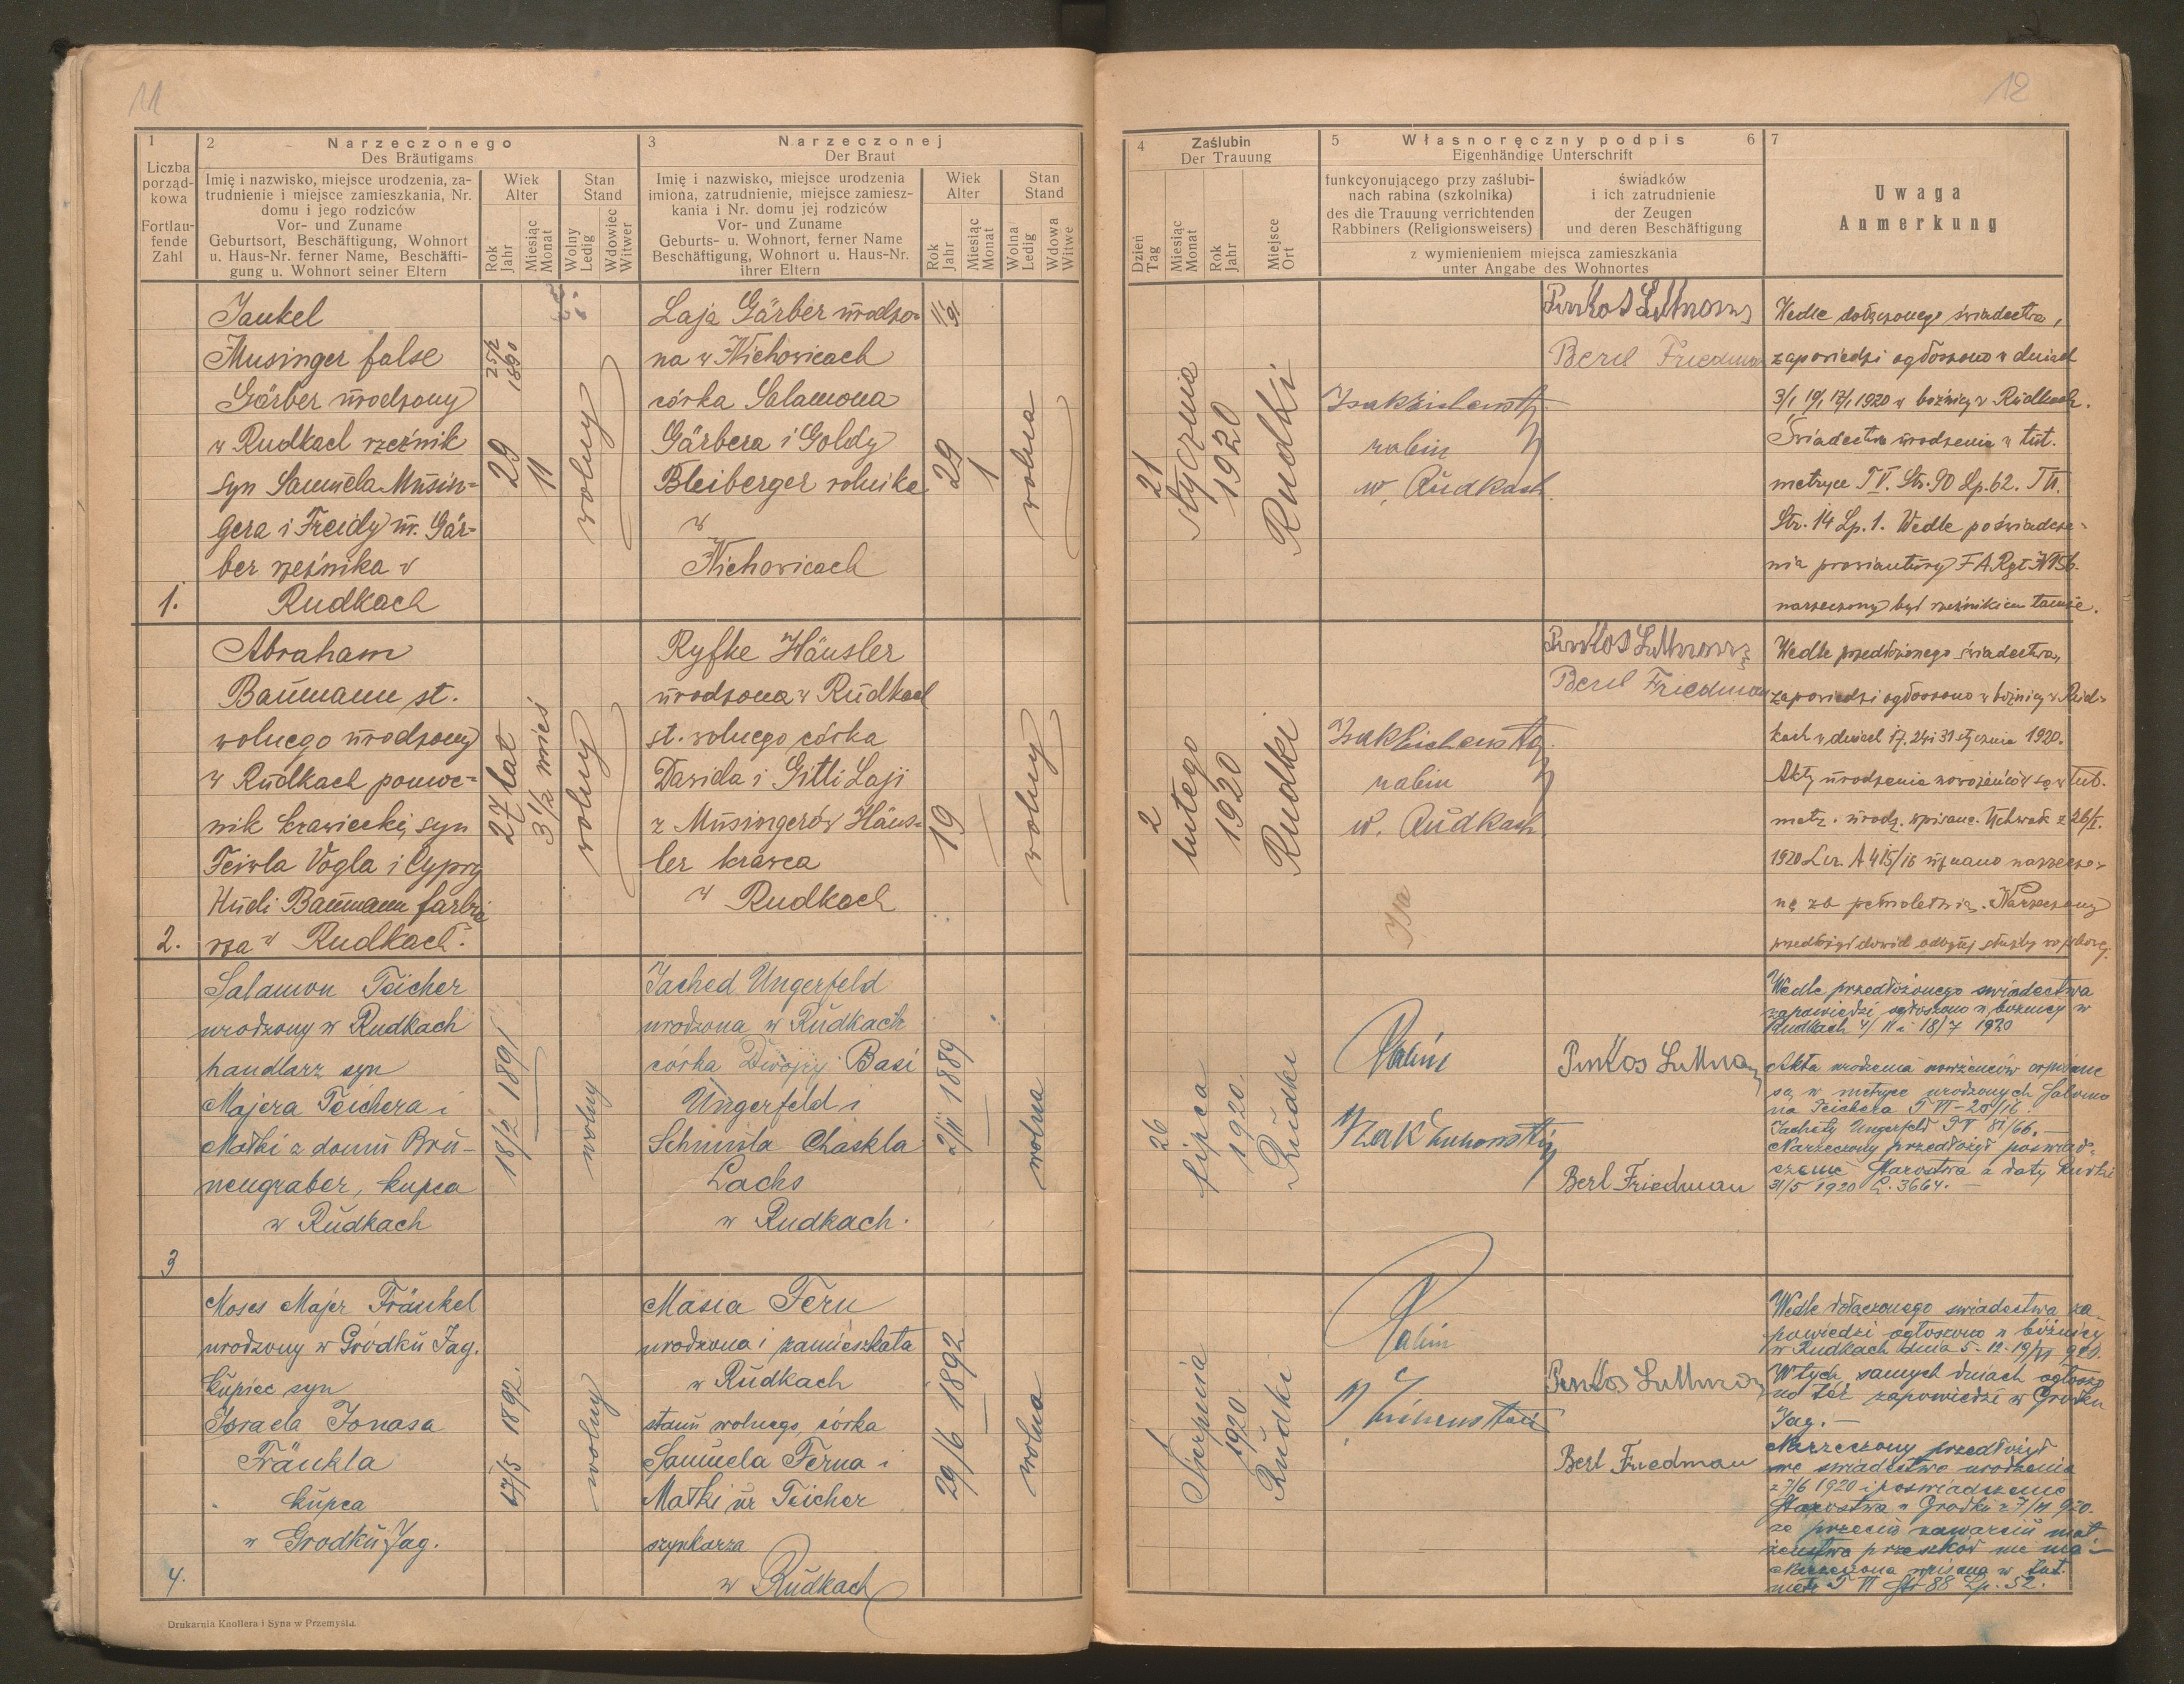 11
1
Liczba
porząd-
kowa
Fortlau-
fende
Zahl
2 Narzeczonego
Des Bräutigams
Imię i nazwisko, miejsce urodzenia, za-
trudnienie i miejsce zamieszkania, Nr.
domu i jego rodziców
Vor- und Zuname
Geburtsort, Beschäftigung, Wohnort
u. Haus-Nr. ferner Name, Beschäfti-
gung u. Wohnort seiner Eltern
Wiek
Alter
Rok
Jahr
Miesiąc
Monat
Stan
Stand
Wolny
Ledig
Wdowiec
Witwer
3 Narzeczonej
Der Braut
Imię i nazwisko, miejsce urodzenia
imiona, zatrudnienie, miejsce zamiesz-
kania i Nr. domu jej rodziców
Vor- und Zuname
Geburts- u. Wohnort, ferner Name
Beschäftigung, Wohnort u. Haus-Nr.
ihrer Eltern
Wiek
Alter
Rok
Jahr
Miesiąc
Monat
Stan
Stand
Wolna
Ledig
Wdowa
Witwe
1.
Jankel
Musinger false
Gärber urodzony
w Rudkach rzeźnik
syn Samuela Musin=
gera i Freidy ur. Gär-
ber rzeźnika w
Rudkach
25/2
1890
29
11
wolny
Laja Gärber urodzo=
na w Nichowicach
córka Salamona
Gärbera i Goldy
Bleiberger rolnika
w
Nichowicach
29
1
wolna
2.
Abraham
Baumann st.
wolnego urodzony
w Rudkach pomoc=
nik krawiecki, syn
Feiwla Vogla i Cypry
Hudi Baumann farbia
rza w Rudkach.
27 lat
3 1/2 mieś
wolny
Ryfke Häusler
urodzona w Rudkach
st. wolnego córka
Dawida i Gitli Laji
z Musingerów Häus=
ler krawca
w Rudkach
19
—
wolny
3
Salamon Teicher
urodzony w Rudkach
handlarz syn
Majera Teichera i
Matki z domu Brü-
neugraber, kupca
w Rudkach
18/2 1891
wolny
Jached Ungerfeld
urodzona w Rudkach
córka Dwojry Basi
Ungerfeld i
Schmila Chaskla
Lachs
w Rudkach.
2/11 1889
wolna
4.
Moses Majer Fränkel
urodzony w Gródku Jag.
kupiec syn
Israela Jonasa
Fränkla
kupca
w Grodku Jag.
17/5 1892.
wolny
Masia Fern
urodzona i zamieszkała
w Rudkach
stanu wolnego, córka
Samuela Ferna i
Małki ur Teicher
szynkarza
w Rudkach
29/6 1892
wolna
Drukarnia Knollera i Syna w Przemyślu.
12
4 Zaślubin
Der Trauung
Dzień
Tag
Miesiąc
Monat
Rok
Jahr
Miejsce
Ort
5 Własnoręczny podpis 6
Eigenhändige Unterschrift
funkcyonującego przy zaślubi-
nach rabina (szkolnika)
des die Trauung verrichtenden
Rabbiners (Religionsweisers)
świadków
i ich zatrudnienie
der Zeugen
und deren Beschäftigung
z wymienieniem miejsca zamieszkania
unter Angabe des Wohnortes
7
Uwaga
Anmerkung
21
stycznia
1920
Rudki
rabin
w. Rudkach.
Berl Friedman
Wedle dołączonego świadectwa,
zapowiedzi ogłoszono w dniach
3/1 10/1 17/1 1920 w bożnicy w Rudkach.
Świadectwa urodzenia w tut.
metryce T V. Str. 90 Lp. 62. T VI.
Str. 14 Lp. 1. Wedle poświadcze=
nia prowiantury F A Rgt N 56.
narzeczony był rzeźnikiem tamże.
2
lutego
1920
Rudki
rabin
w. Rudkach
Berl Friedman
Wedle przedłożonego świadectwa,
zapowiedzi ogłoszono w bożnicy w Rud=
kach w dniach 17. 24 i 31 stycznia 1920.
Akty urodzenia nowożeńców są w tut.
metr. urodz. wpisane. Uchwałą z 26/I.
1920 Lcz. A 415/16 uznano narzeczo=
ną za pełnoletnią. Narzeczony
przedłożył dowód odbytej służby wojskowej.
26
lipca
1920.
Rudki
Rabin
Berl Friedman
Wedle przedłożonego swiadectwa
zapowiedzi ogłoszono w bożnicy w
Rudkach 4/ 11 i 18/7 1920
Akta urodzenia nowożeńców wpisane
są w metryce urodzonych Salomo
na Teichera T VI - 20/16.
Jachety Ungerfeld T V 81/66. —
Narzeczony przedłożył poświad=
czenie Starostwa z daty Rudki
31/5 1920 L. 3664. —
1
Sierpnia
1920.
Rudki
Rabin
Berl Friedman
Wedle dołączonego swiadectwa za
powiedzi ogłoszono w bóżnicy
w Rudkach dnia 5 - 12 - 19/VI 920.
W tych samych dniach ogłoszo
no też zapowiedzi w Grodku
Jag. —
Narzeczony przedłożył
swe swiadectwo urodzenia
z 7/6 1920 i poświadczenie
Starostwa w Grodku z 7/VI 920.
że przeciw zawarciu mał
żeństwa przeszkód nie ma —
Narzeczona wpisana w tut.
metr T VI Str 88 Lp. 52.